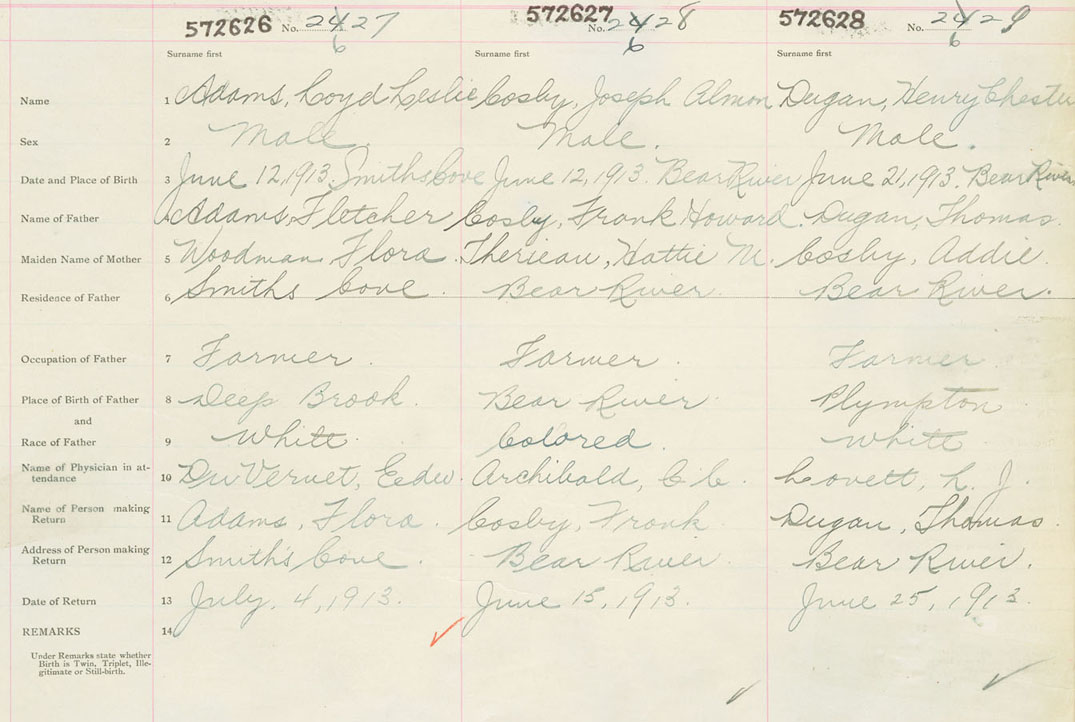 572626 No. 2427 572627 No. 2428 572628 No. 2429
6 6 6
Surname first Surname first Surname first
Name 1 Adams, Loyd Leslie Cosby, Joseph Almon Dugan, Henry Chester
Sex 2 Male. Male. Male.
Date and Place of Birth 3 June 12, 1913, Smiths Cove June 12, 1913. Bear River June 21, 1913. Bear River
Name of Father Adams, Fletcher Cosby, Frank Howard. Dugan, Thomas.
Maiden Name of Mother 5 Woodman, Flora. Therieau, Hattie M. Cosby, Addie.
Residence of Father 6 Smiths Cove. Bear River. Bear River.
Occupation of Father 7 Farmer. Farmer. Farmer.
Place of Birth of Father 8 Deep Brook. Bear River. Plympton
and
Race of Father 9 White. Colored. White
Name of Physician in at-
tendance 10 DuVernet, Edw. Archibald, C. C. Lovett, L. J.
Name of Person making
Return 11 Adams, Flora. Cosby, Frank Dugan, Thomas.
Address of Person making
Return 12 Smith's Cove. Bear River. Bear River.
Date of Return 13 July. 4, 1913. June 15, 1913. June 25, 1913.
REMARKS 14
Under Remarks state whether
Birth is Twin, Triplet, Ille-
gitimate or Still-birth.